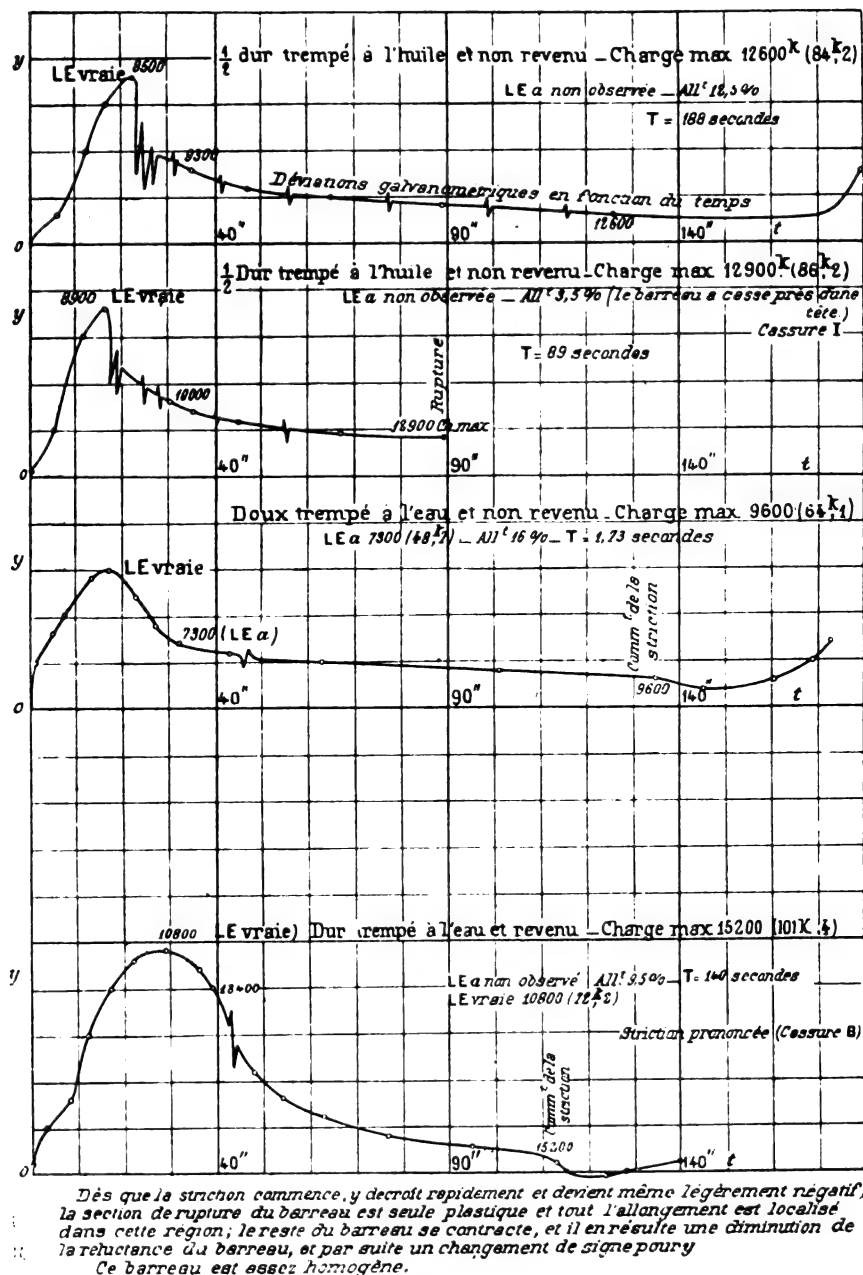 y
½ dur trempé à l'huile et non revenu _ Charge max 12600ᵏ (84ᵏ,2)
LE vraie 8500
LE a non observée _ Allᵗ 12,5%
T = 188 secondes
9300
Déviations galvanométriques en fonction du temps
12600
o
40"
90"
140"
t
½ Dur trempé à l'huile et non revenu _ Charge max 12900ᵏ (86ᵏ,2)
8900 LE vraie
LE a non observée _ Allᵗ 3,5% (le barreau a cassé près d'une
tête.)
Cassure I
y
T = 89 secondes
Rupture
10000
12900 C max
o
40"
90"
140"
t
Doux trempé à l'eau et non revenu _ Charge max 9600 (64ᵏ,1)
LE a 7300 (48ᵏ,7) _ Allᵗ 16 % _ T = 1,73 secondes
y
LE vraie
7300 (LE a)
Commᵗ de la
striction
9600
o
40"
90"
140"
t
10800 LE vraie) Dur trempé à l'eau et revenu _ Charge max 15200 (101K,4)
y
LE a non observé Allᵗ 9,5% _ T = 140 secondes
LE vraie 10800 (72ᵏ,2)
13400
Striction prononcée (Cassure B)
Commᵗ de la
striction
15200
o
40"
90"
140"
t
Dès que la striction commence, y decroît rapidement et devient même légèrement négatif,
la section de rupture du barreau est seule plastique et tout l'allongement est localisé
dans cette région; le reste du barreau se contracte, et il en résulte une diminution de
la reluctance du barreau, et par suite un changement de signe pour y
Ce barreau est assez homogène.